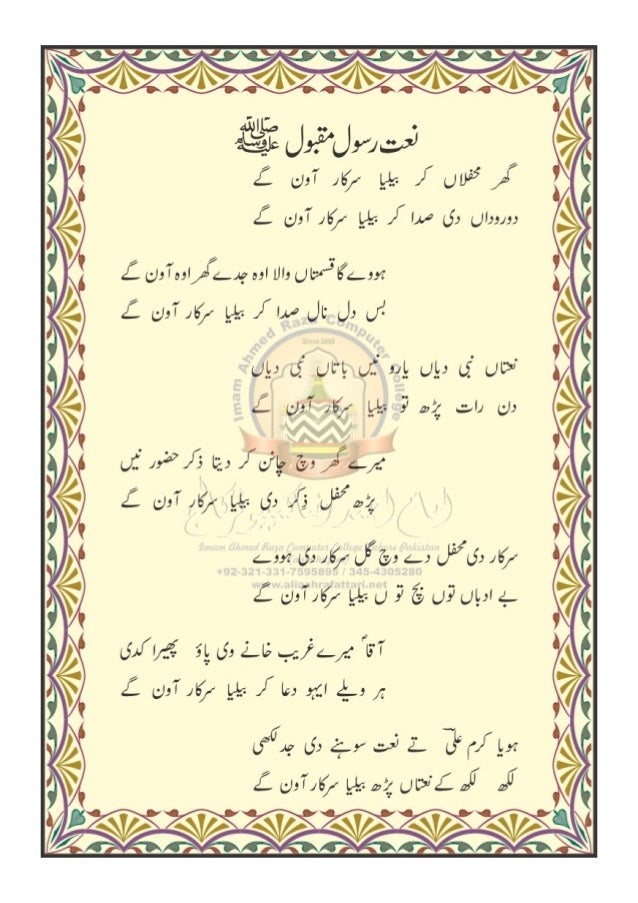 نعت رسول مقبول ﷺ
گھر محفلاں کر بیلیا سرکار آون گے
دوروداں دی صدا کر بیلیا سرکار آون گے
ہووے گا قسمتاں والا اوہ جدے گھر اوہ آون گے
بس دل نال صدا کر بیلیا سرکار آون گے
نعتاں نبی دیاں یارو نیں باتاں نبی دیاں
دن رات پڑھ تو بیلیا سرکار آون گے
میرے گھر وچ چانن کر دیتا ذکر حضور نیں
پڑھ محفل ذکر دی بیلیا سرکار آون گے
سرکار دی محفل دے وچ گل سرکار دی ہووے
بے ادباں توں بچ تو ں بیلیا سرکار آون گے
آقاؐ میرے غریب خانے وی پاؤ پھیرا کدی
ہر ویلے ایہو دعا کر بیلیا سرکار آون گے
ہویا کرم علی تے نعت سوہنے دی جد لکھی
لکھ لکھ کے نعتاں پڑھ بیلیا سرکار آون گے
Imam Ahmed Raza Computer College
Since 2008
Imam Ahmed Raza Computer College Lahore Pakistan
+92-321-331-7595895 / 345-4305280
www.aliashrafattari.net